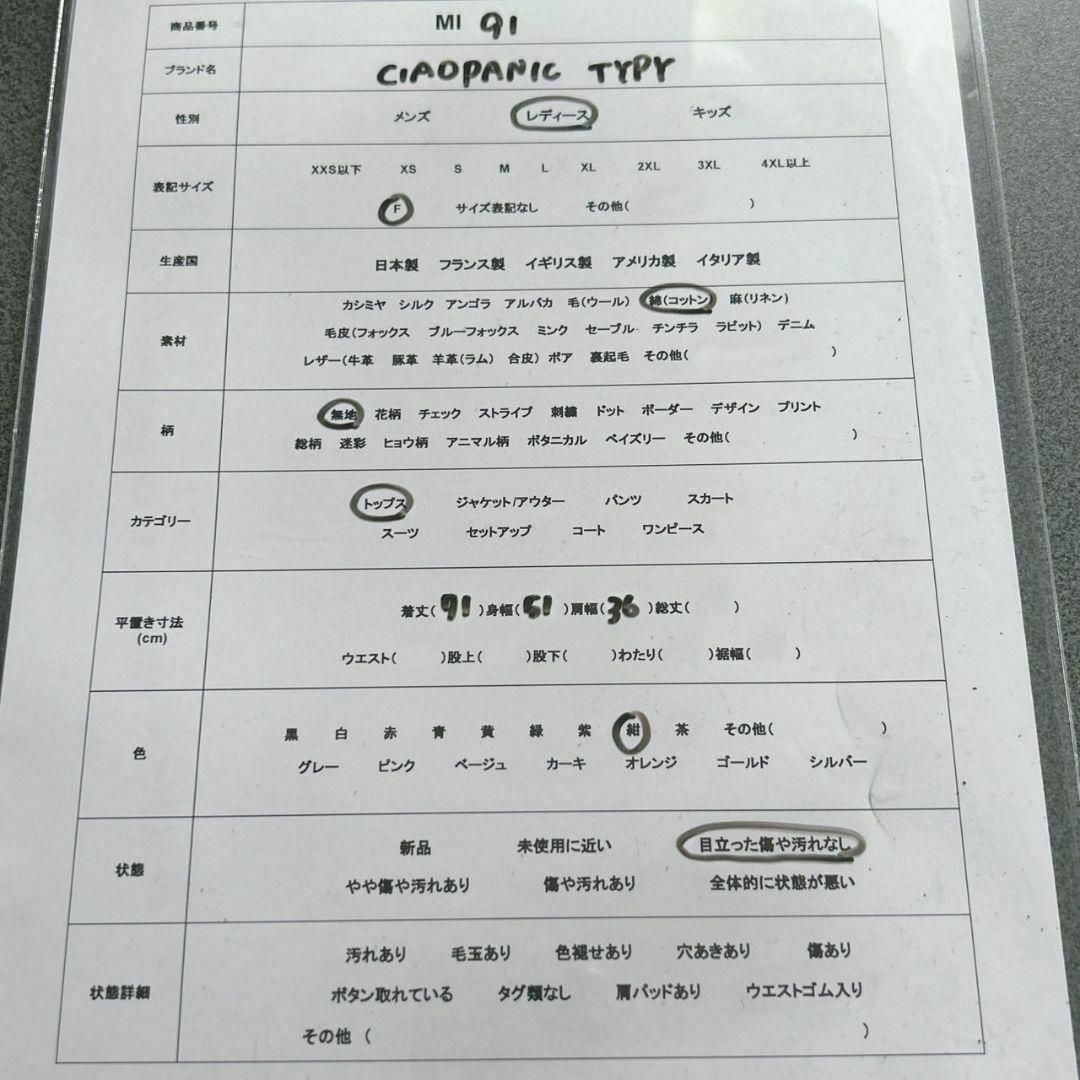 商品番号 MI 91
ブランド名 CIAOPANIC TYPY
性別 メンズ レディース キッズ
表記サイズ XXS以下 XS S M L XL 2XL 3XL 4XL以上
F サイズ表記なし その他( )
生産国 日本製 フランス製 イギリス製 アメリカ製 イタリア製
素材 カシミヤ シルク アンゴラ アルパカ 毛(ウール) 綿(コットン) 麻(リネン)
毛皮(フォックス ブルーフォックス ミンク セーブル チンチラ ラビット) デニム
レザー(牛革 豚革 羊革(ラム) 合皮) ボア 裏起毛 その他( )
柄 無地 花柄 チェック ストライプ 刺繍 ドット ボーダー デザイン プリント
総柄 迷彩 ヒョウ柄 アニマル柄 ボタニカル ペイズリー その他( )
カテゴリー トップス ジャケット/アウター パンツ スカート
スーツ セットアップ コート ワンピース
平置き寸法 (cm) 着丈( 91 )身幅( 51 )肩幅( 36 )総丈( )
ウエスト( )股上( )股下( )わたり( )裾幅( )
色 黒 白 赤 青 黄 緑 紫 紺 茶 その他( )
グレー ピンク ベージュ カーキ オレンジ ゴールド シルバー
状態 新品 未使用に近い 目立った傷や汚れなし
やや傷や汚れあり 傷や汚れあり 全体的に状態が悪い
状態詳細 汚れあり 毛玉あり 色褪せあり 穴あきあり 傷あり
ボタン取れている タグ類なし 肩パッドあり ウエストゴム入り
その他 ( )